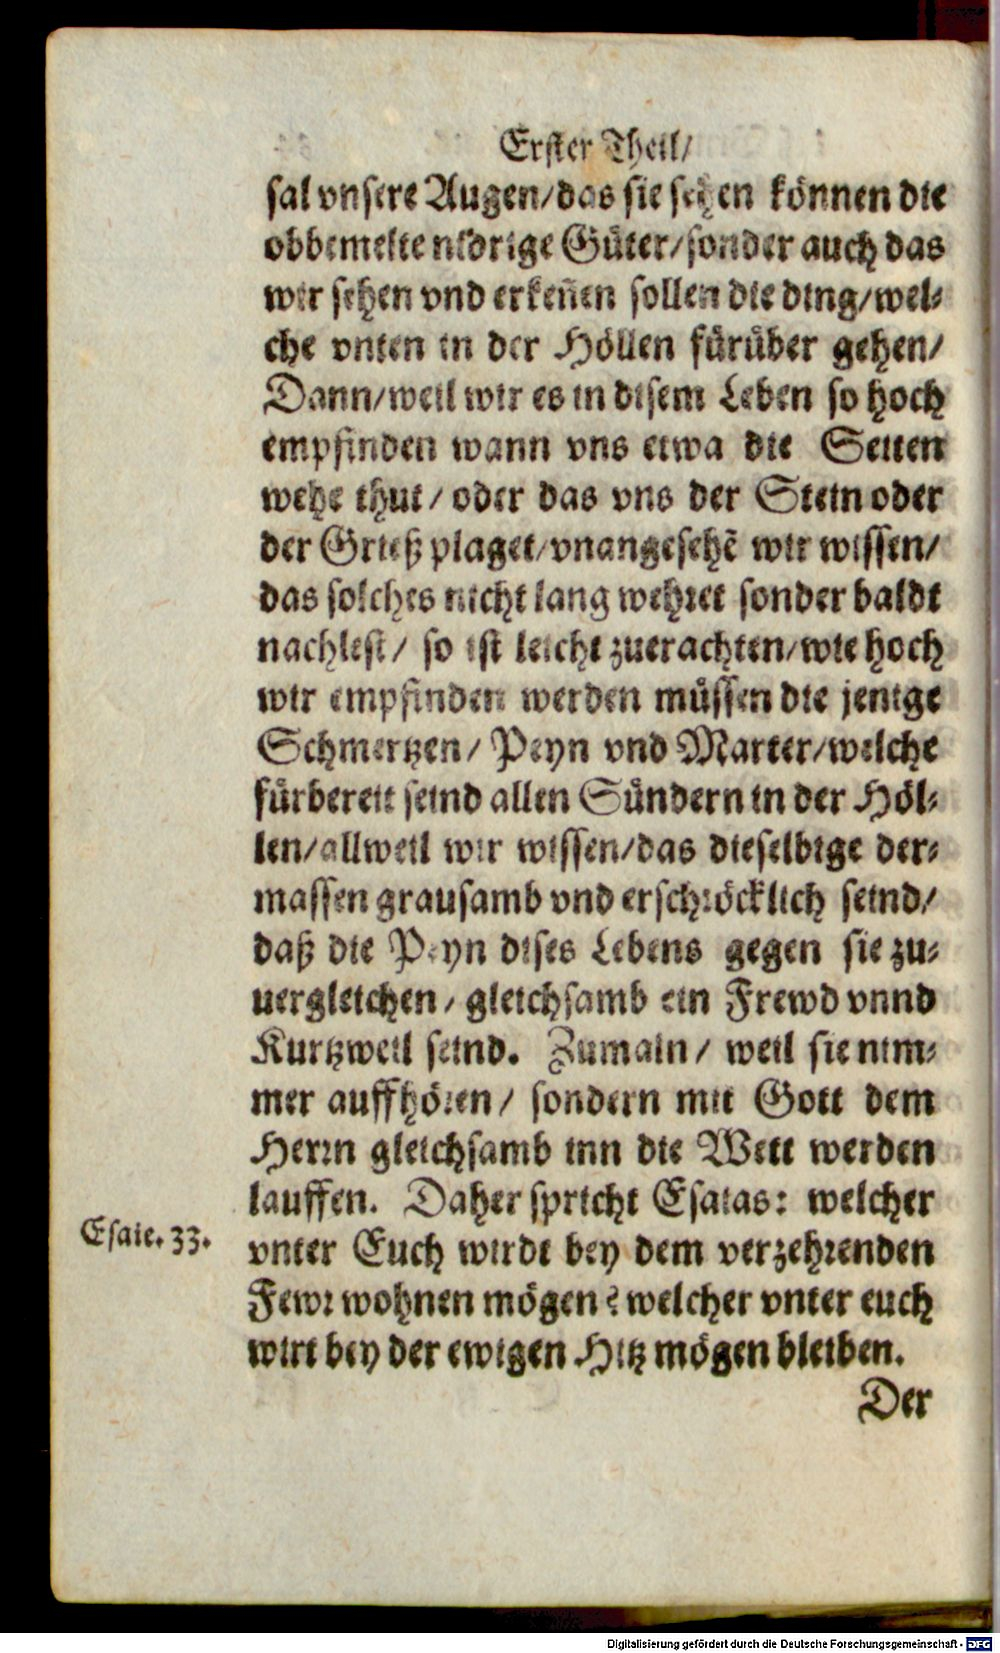 Erster Theil/
sal vnsere Augen/das sie sehen können die
obbemelte nidrige Güter/sonder auch das
wir sehen vnd erkeñen sollen die ding/wel-
che vnten in der Höllen fürüber gehen/
Dann/weil wir es in disem Leben so hoch
empfinden wann vns etwa die Seiten
wehe thut/ oder das vns der Stein oder
der Grieß plaget/vnangesehē wir wissen/
das solches nicht lang wehret sonder baldt
nachlest/ so ist leicht zuerachten/wie hoch
wir empfinden werden müssen die jenige
Schmertzen/ Peyn vnd Marter/welche
fürbereit seind allen Sündern in der Höl-
len/allweil wir wissen/das dieselbige der-
massen grausamb vnd erschröcklich seind/
daß die Peyn dises Lebens gegen sie zu-
uergleichen/ gleichsamb ein Frewd vnnd
Kurtzweil seind. Zumaln/ weil sie nim-
mer auffhören/ sondern mit Gott dem
Herrn gleichsamb inn die Wett werden
lauffen. Daher spricht Esaias: welcher
Esaie. 33.
vnter Euch wirdt bey dem verzehrenden
Fewr wohnen mögen? welcher vnter euch
wirt bey der ewigen Hitz mögen bleiben.
Der
Digitalisierung gefördert durch die Deutsche Forschungsgemeinschaft - DFG